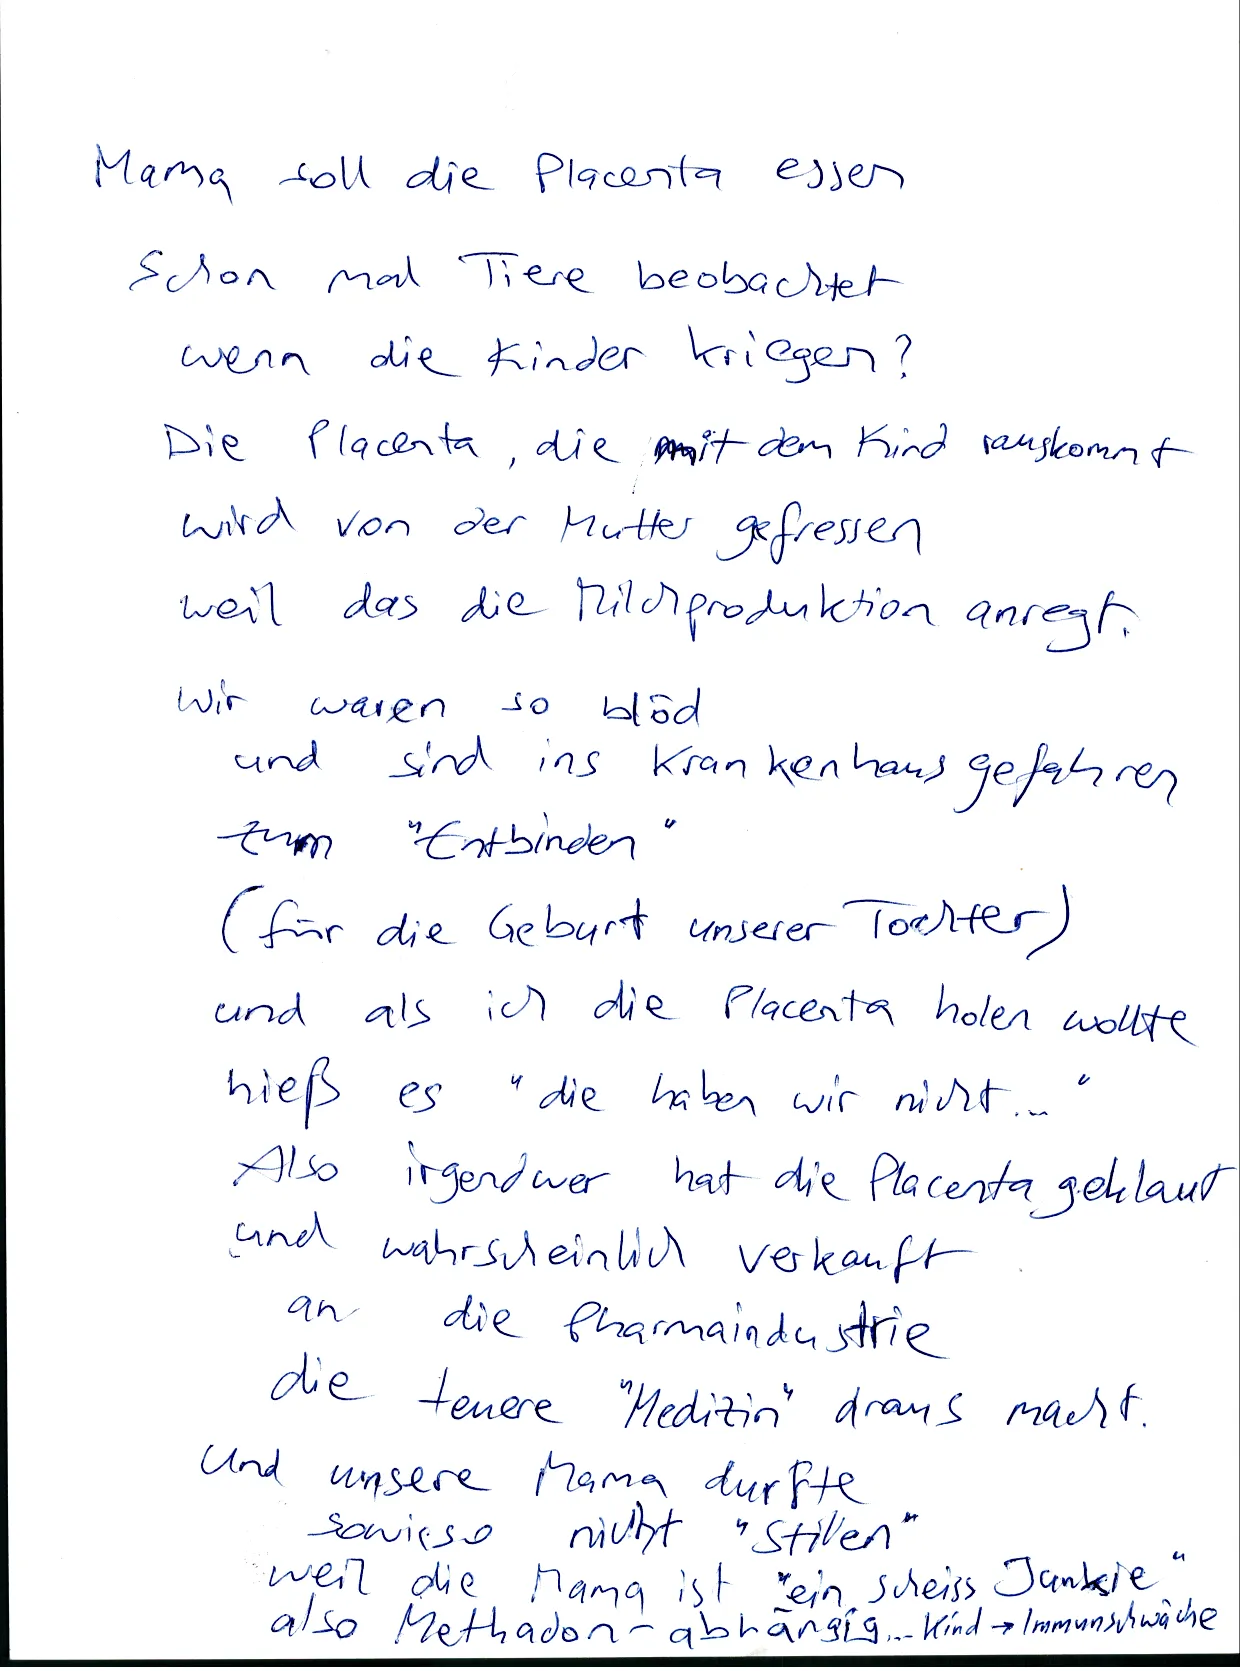 Mama soll die Placenta essen
Schon mal Tiere beobachtet
wenn die Kinder kriegen?
Die Placenta, die mit dem Kind rauskommt
wird von der Mutter gefressen
weil das die Milchproduktion anregt.
Wir waren so blöd
und sind ins Krankenhaus gefahren
zum "Entbinden"
(für die Geburt unserer Tochter)
und als ich die Placenta holen wollte
hieß es "die haben wir nicht..."
Also irgendwer hat die Placenta geklaut
und wahrscheinlich verkauft
an die Pharmaindustrie
die teuere "Medizin" draus macht.
Und unsere Mama durfte
sowieso nicht "Stillen"
weil die Mama ist "ein scheiss Junkie"
also Methadon-abhängig... Kind → Immunschwäche